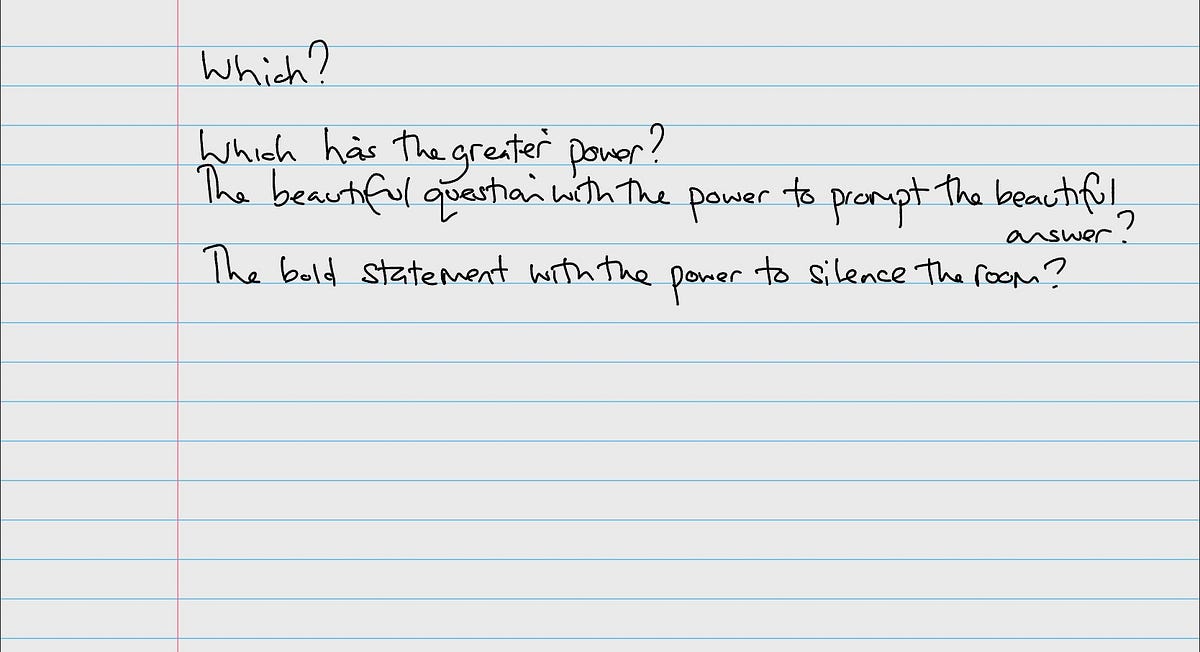 Which?
Which has the greater power?
The beautiful question with the power to prompt the beautiful
answer?
The bold statement with the power to silence the room?